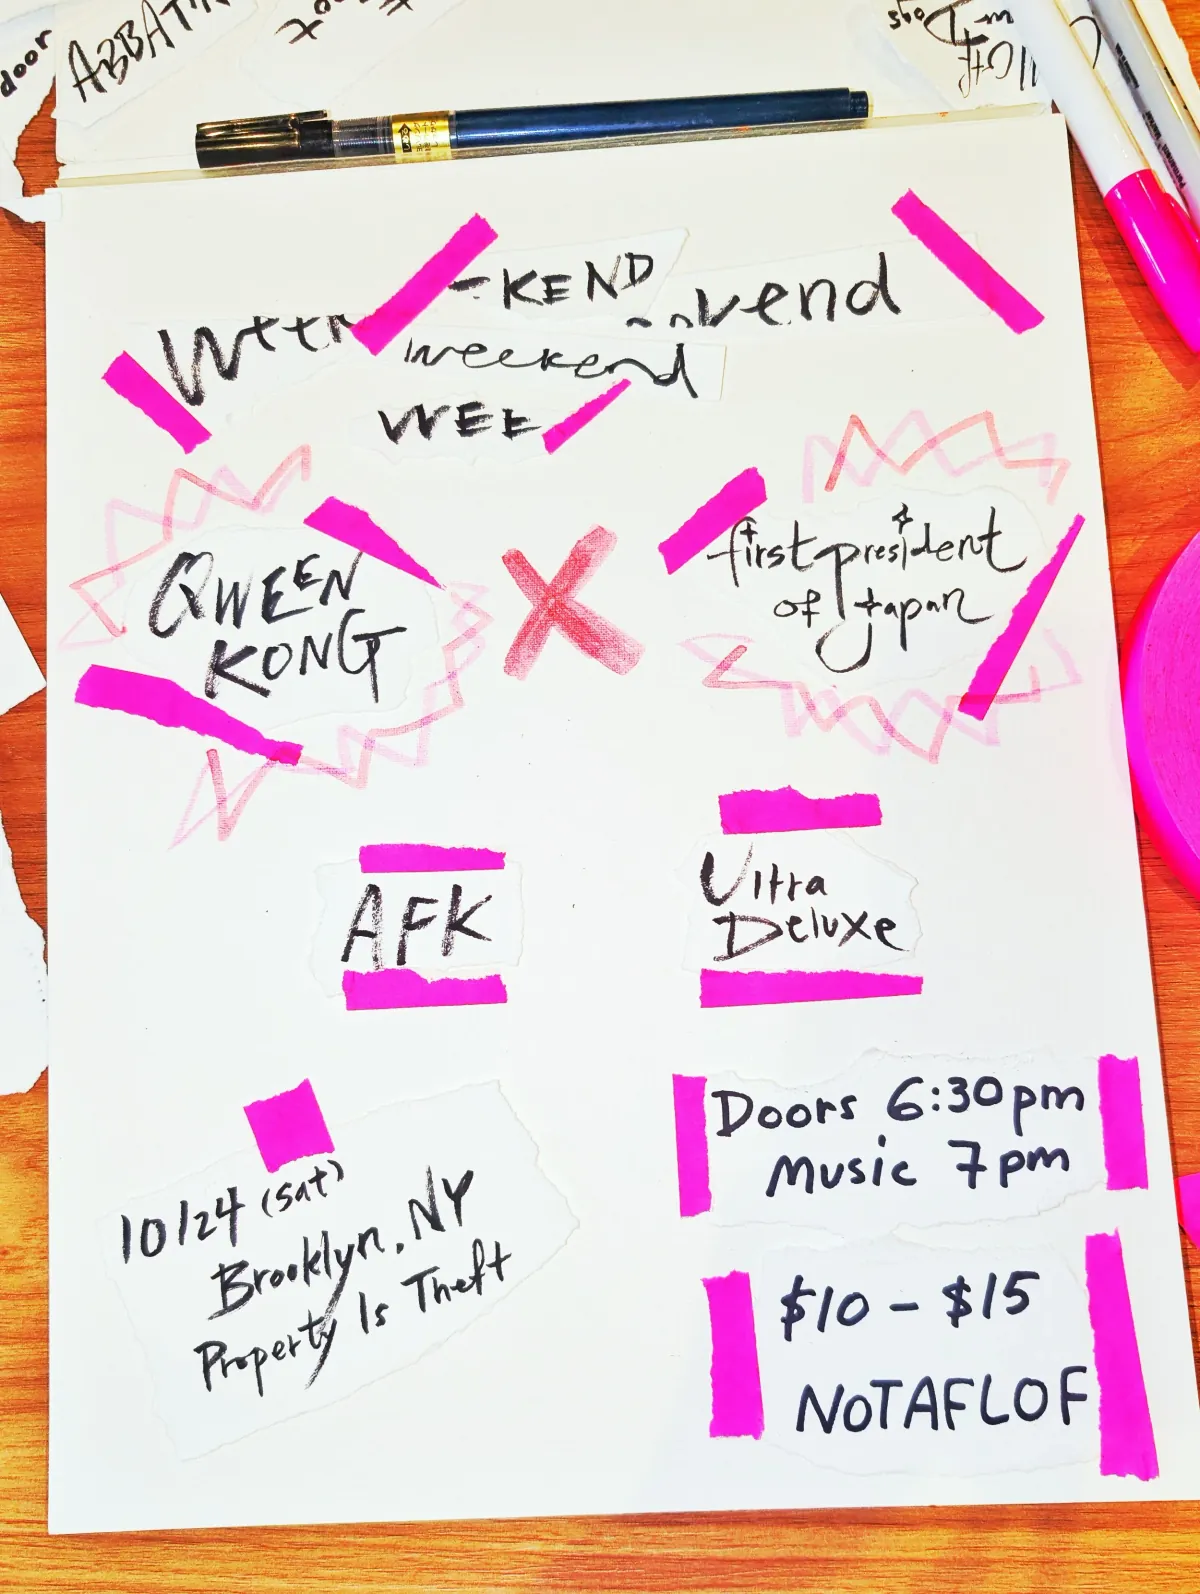 door
ABBATH
Dogs
-KEND
vend
weekend
WEE
QWEEN
KONG
X
first president
of Japan
AFK
Ultra
Deluxe
10/24 (sat)
Brooklyn, NY
Property Is Theft
Doors 6:30pm
Music 7pm
$10 - $15
NOTAFLOF